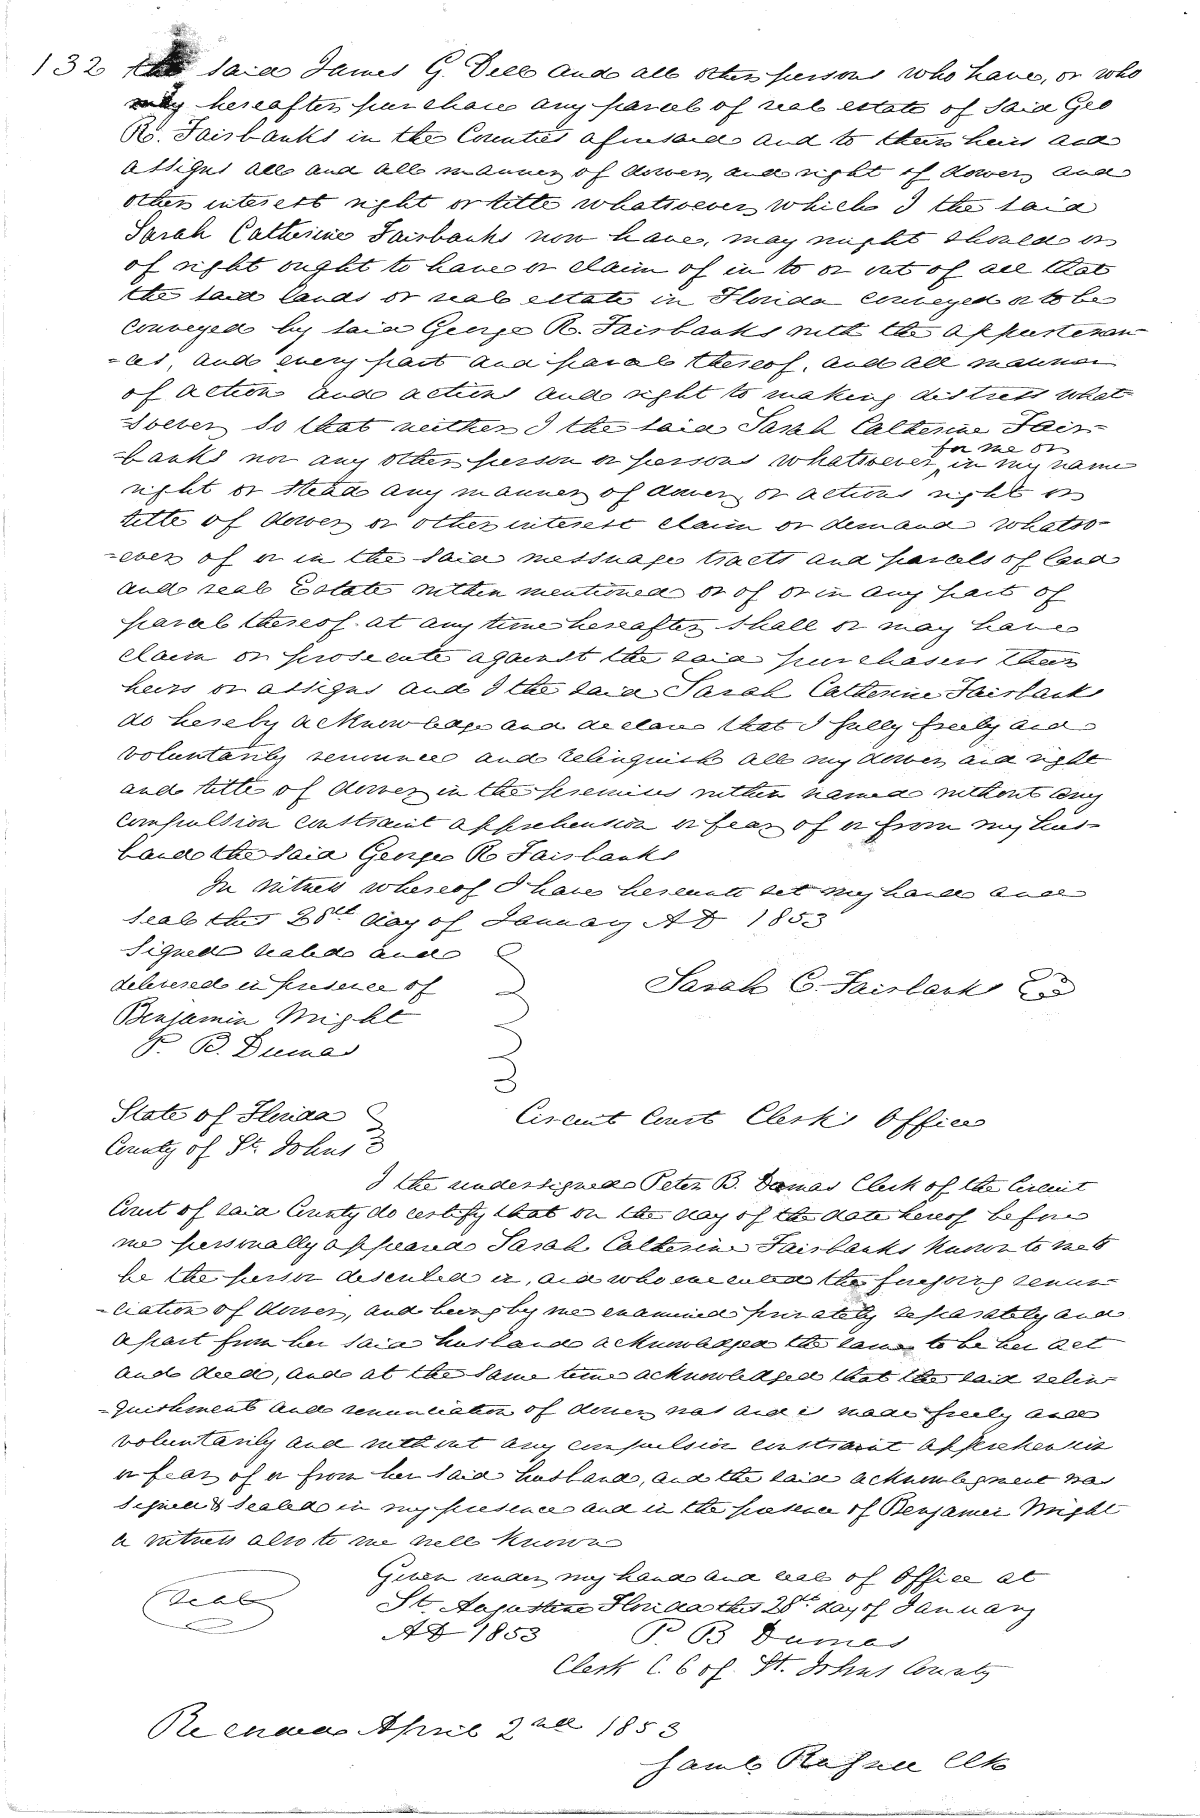 132 the said James G. Dell and all other persons who have, or who
may hereafter purchase any parcel of real estate of said Geo
R. Fairbanks in the Counties aforesaid and to their heirs and
assigns all and all manner of dower, and right of dower and
other interest right or title whatsoever which I the said
Sarah Catherine Fairbanks now have, may might should or
of right ought to have or claim of in to or out of all that
the said lands or real estate in Florida conveyed or to be
conveyed by said George R. Fairbanks with the appurtenan-
-ces, and every part and parcel thereof, and all manner
of action and actions and right to making distress what
-soever so that neither I the said Sarah Catherine Fair-
-banks nor any other person or persons whatsoever for me or in my name
right or stead any manner of dower or actions right or
title of dower or other interest claim or demand whatso-
-ever of or in the said messuage tracts and parcels of land
and real Estate within mentioned or of or in any part of
parcel thereof at any time hereafter shall or may have
claim or prosecute against the said purchasers their
heirs or assigns and I the said Sarah Catherine Fairbanks
do hereby acknowledge and declare that I fully freely and
voluntarily renounce and relinquish all my dower and right
and title of dower in the premises within named without any
compulsion constraint apprehension or fear of or from my hus-
band the said George R Fairbanks
In witness whereof I have hereunto set my hand and
seal this 28th day of January AD 1853
Signed sealed and
delivered in presence of
Sarah C. Fairbanks
Benjamin Wright
P. B. Dumas
State of Florida
Circuit Court Clerk's Office
County of St. Johns
I the undersigned Peter B. Dumas Clerk of the Circuit
Court of said County do certify that on the day of the date hereof before
me personally appeared Sarah Catherine Fairbanks known to me to
be the person described in, and who executed the foregoing renun-
-ciation of dower, and being by me examined privately separately and
apart from her said husband acknowledged the same to be her act
and deed, and at the same time acknowledged that the said relin-
-quishment and renunciation of dower was and is made freely and
voluntarily and without any compulsion constraint apprehension
or fear of or from her said husband, and the said acknowlegment was
signed & sealed in my presence and in the presence of Benjamin Wright
a witness also to me well known
Given under my hand and seal of Office at
Seal
St. Augustine Florida this 28th day of January
AD 1853 P. B Dumas
Clerk C. C of St. Johns County
Recorded April 2nd 1853
Clk